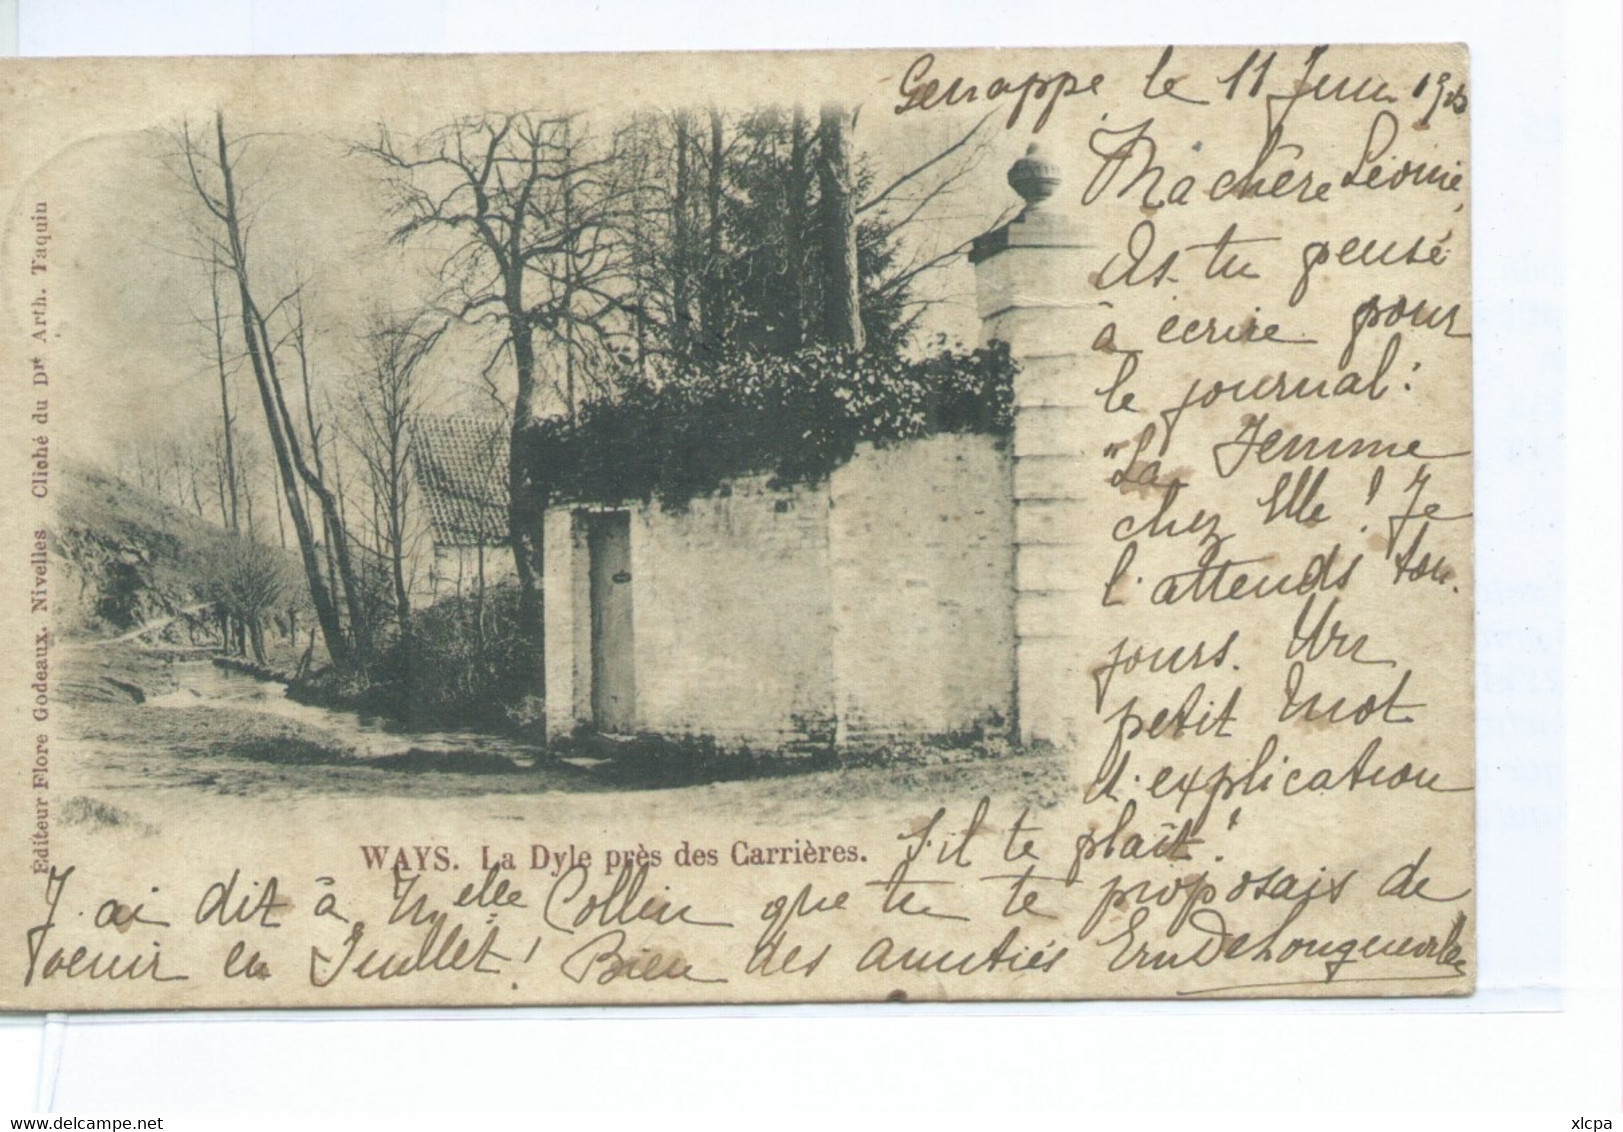 Genappe le 11 Juin 190
Ma chère Léonie,
As-tu pensé
à écrire pour
le journal:
"La Femme
chez Elle! Je
l'attends tou-
jours. Un
petit mot
d'explication
s'il te plaît!
J'ai dit à Melle Collin que tu te proposais de
venir en Juillet! Bien des amitiés Ern DeLongueville
WAYS. La Dyle près des Carrières.
Editeur Flore Godeaux. Nivelles Cliché du Dr Arth. Taquin
delcampe.net
xlcpa